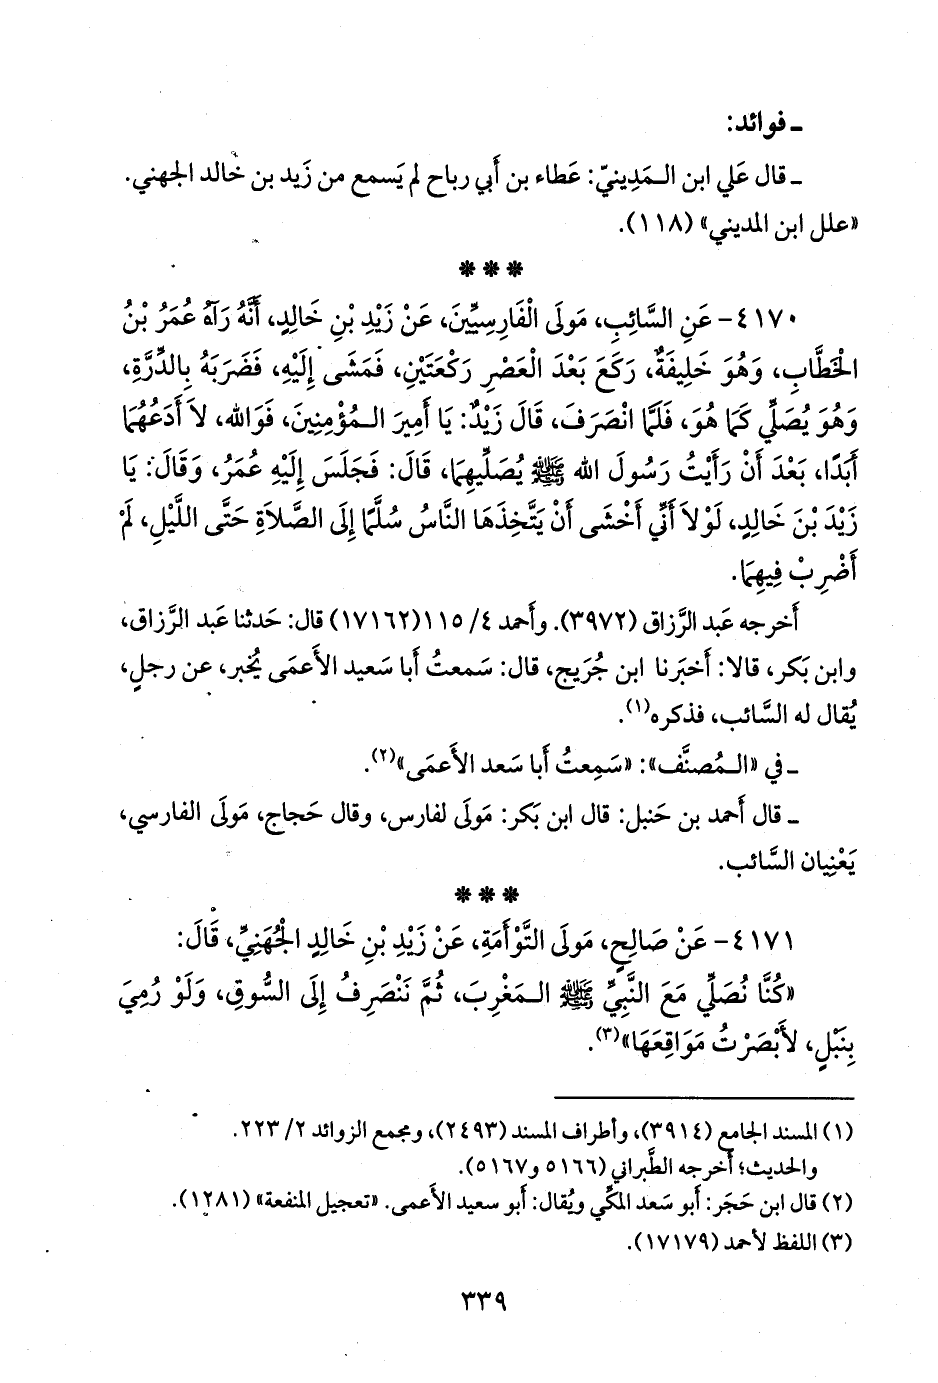 ـ فوائد:
ـ قال عَلي ابن الـمَدِينيّ: عَطاء بن أَبي رباح لم يَسمع من زَيد بن خالد الجهني.
«علل ابن المديني» (١١٨).
* * *
٤١٧٠- عَنِ السَّائِبِ، مَولَى الْفَارِسِيِّينَ، عَنْ زَيْدِ بْنِ خَالِدٍ، أَنَّهُ رَآهُ عُمَرُ بْنُ
الخَطَّابِ، وَهُوَ خَلِيفَةٌ، رَكَعَ بَعْدَ الْعَصْرِ رَكْعَتَيْنِ، فَمَشَى إِلَيْهِ، فَضَرَبَهُ بِالدِّرَّةِ،
وَهُوَ يُصَلِّي كَمَا هُوَ، فَلَمَّا انْصَرَفَ، قَالَ زَيْدٌ: يَا أَمِيرَ الـمُؤْمِنِينَ، فَوَالله، لاَ أَدَعُهُمَا
أَبَدًا، بَعْدَ أَنْ رَأَيْتُ رَسُولَ الله ﷺ يُصَلِّيهِمَا، قَالَ: فَجَلَسَ إِلَيْهِ عُمَرُ، وَقَالَ: يَا
زَيْدَ بْنَ خَالِدٍ، لَوْلاَ أَنِّي أَخْشَى أَنْ يَتَّخِذَهَا النَّاسُ سُلَّمًا إِلَى الصَّلاَةِ حَتَّى اللَّيْلِ، لَمْ
أَضْرِبْ فِيهِمَا.
أَخرجه عَبد الرَّزاق (٣٩٧٢). وأَحمد ٤/ ١١٥(١٧١٦٢) قال: حَدثنا عَبد الرَّزاق،
وابن بَكر، قالا: أَخبَرنا ابن جُرَيج، قال: سَمعتُ أَبا سَعيد الأَعمَى يُخبر، عن رجلٍ،
يُقال له السَّائب، فذكره(١).
ـ في «الـمُصنَّف»: «سَمِعتُ أَبا سَعد الأَعمَى»(٢).
ـ قال أَحمد بن حَنبل: قال ابن بَكر: مَولَى لفارس، وقال حَجاج، مَولَى الفارسي،
يَعْنِيان السَّائب.
* * *
٤١٧١- عَنْ صَالِحٍ، مَولَى التَّوْأَمَةِ، عَنْ زَيْدِ بْنِ خَالِدٍ الجُهَنِيِّ، قَالَ:
«كُنَّا نُصَلِّي مَعَ النَّبِيِّ ﷺ الـمَغْرِبَ، ثُمَّ نَنْصَرِفُ إِلَى السُّوقِ، وَلَوْ رُمِيَ
بِنَبْلٍ، لأَبْصَرْتُ مَوَاقِعَهَا»(٣).
(١) المسند الجامع (٣٩١٤)، وأطراف المسند (٢٤٩٣)، ومجمع الزوائد ٢/ ٢٢٣.
والحديث؛ أَخرجه الطَّبراني (٥١٦٦ و٥١٦٧).
(٢) قال ابن حَجَر: أَبو سَعد المَكِّي ويُقال: أَبو سعيد الأَعمى. «تعجيل المنفعة» (١٢٨١).
(٣) اللفظ لأحمد (١٧١٧٩).
٣٣٩